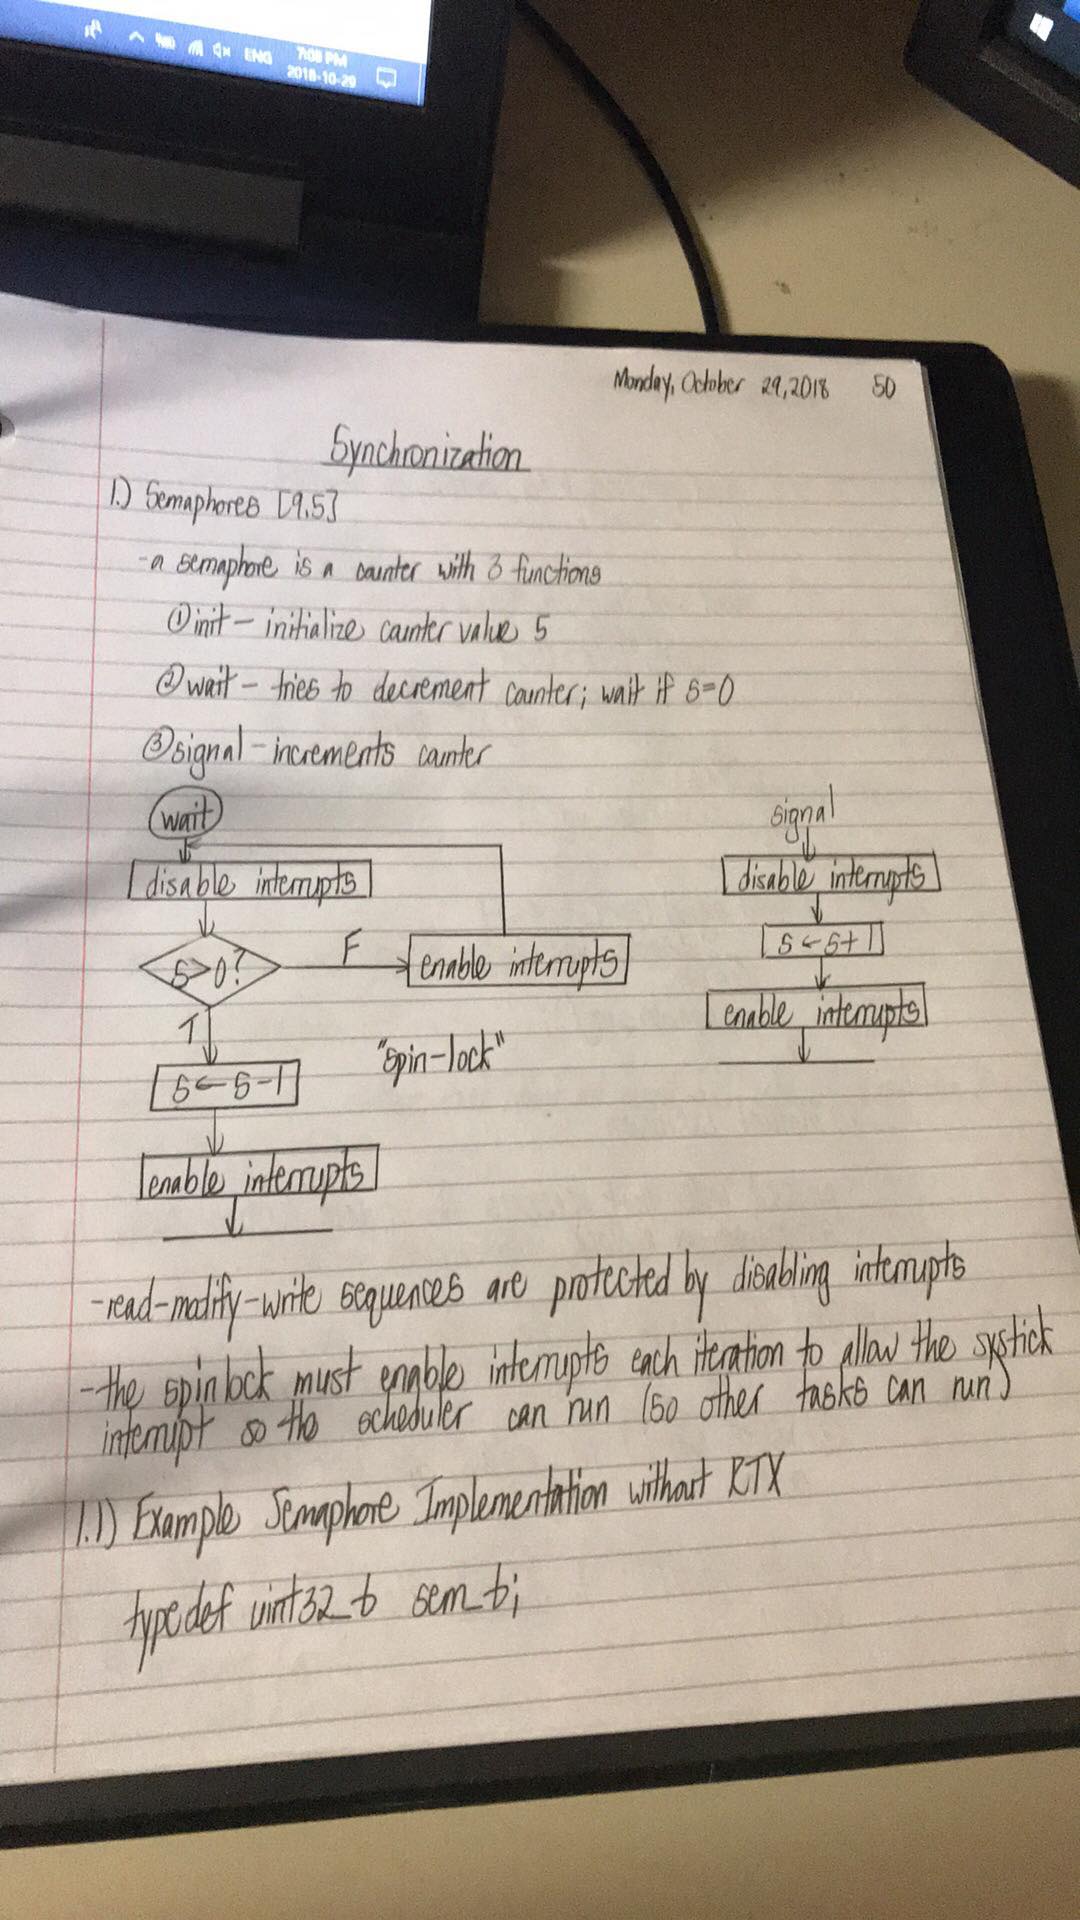 ENG
7:08 PM
2018-10-29
Monday, October 29, 2018 50
Synchronization
1.) Semaphores [9.5]
-a semaphore is a counter with 3 functions
① init - initialize counter value s
② wait - tries to decrement counter; wait if s=0
③ signal - increments counter
wait
disable interrupts
s>0?
F
enable interrupts
T
s ← s-1
"spin-lock"
enable interrupts
signal
disable interrupts
s ← s+1
enable interrupts
-read-modify-write sequences are protected by disabling interrupts
-the spinlock must enable interrupts each iteration to allow the systick
interrupt so the scheduler can run (so other tasks can run)
1.1) Example Semaphore Implementation without RTX
typedef uint32_t sem_t;